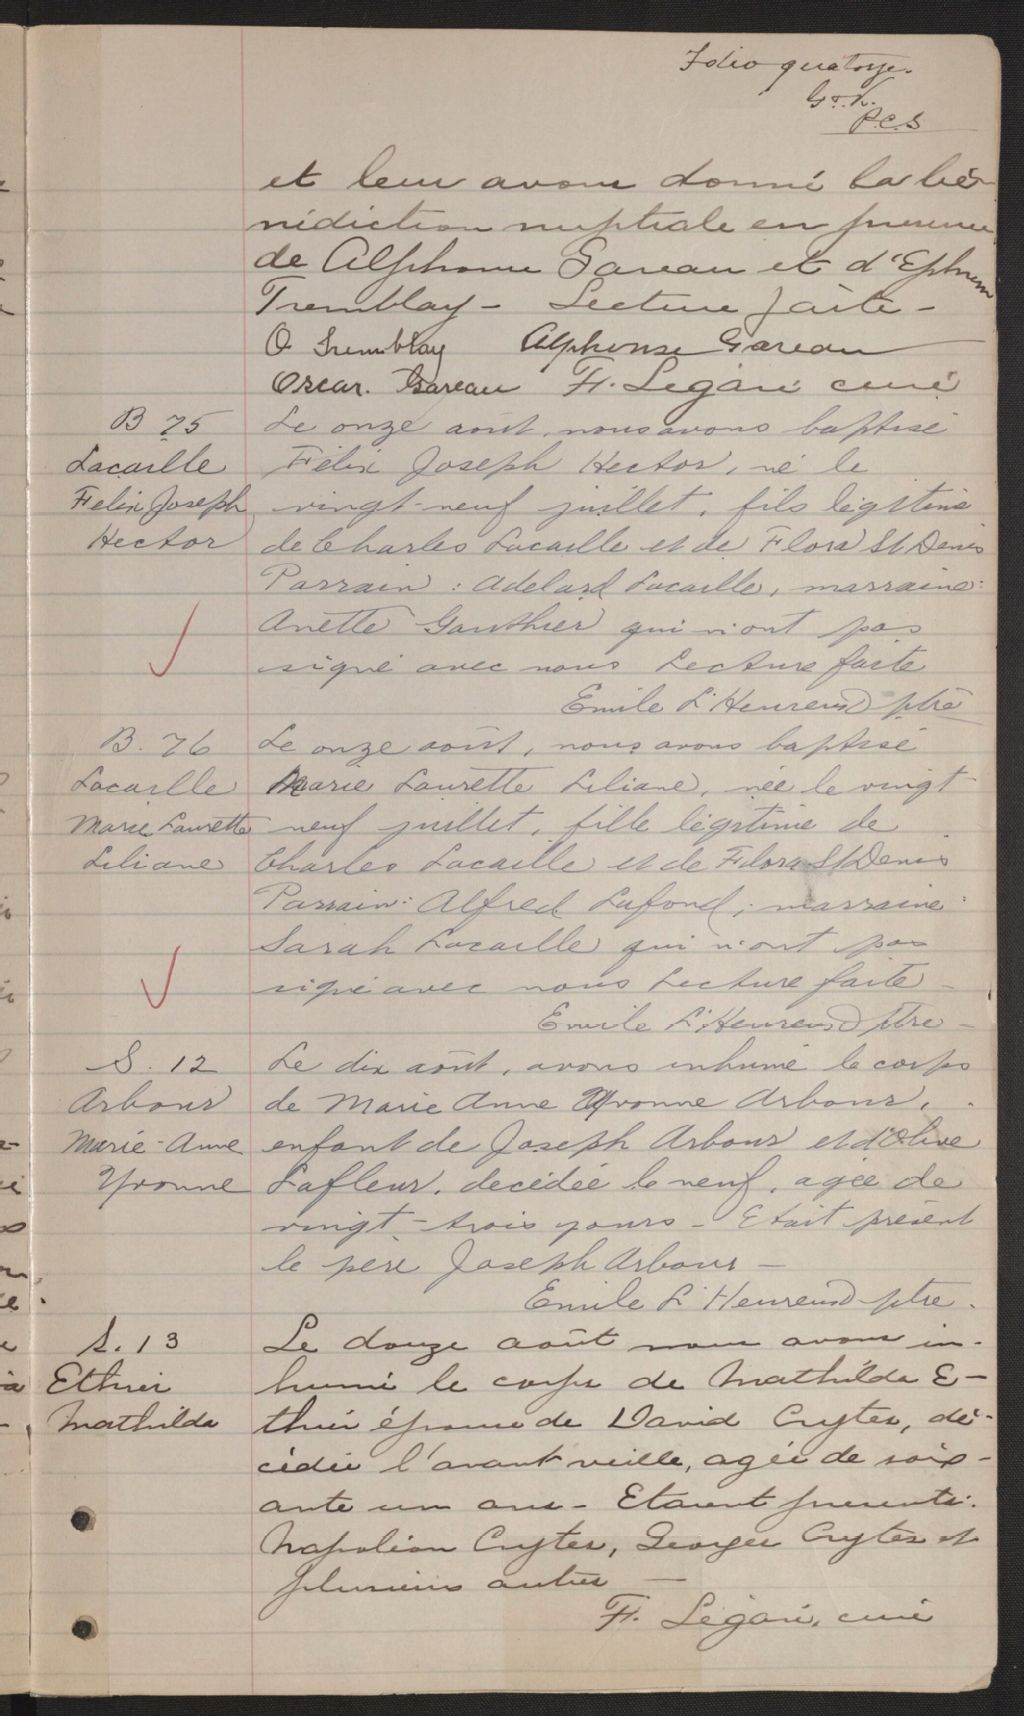 Folio quatorze.
G. V.
P.C.S
et leur avons donné la bé-
nédiction nuptiale en présence
de Alphonse Gareau et d'Ephrem
Tremblay - Lecture faite -
O Tremblay Alphonse Gareau
Oscar. Gareau F. Légaré curé
B 75
Lacaille
Felix Joseph
Hector
Le onze août, nous avons baptisé
Félix Joseph Hector, né le
vingt-neuf juillet, fils légitime
de Charles Lacaille et de Flora St Denis
Parrain : Adelard Lacaille, marraine:
Anette Gauthier qui n'ont pas
signé avec nous Lecture faite
Emile L'Heureux ptre
B. 76
Lacaille
Marie Laurette
Liliane
Le onze août, nous avons baptisé
Marie Laurette Liliane, née le vingt
neuf juillet, fille légitime de
Charles Lacaille et de Flora St Denis
Parrain: Alfred Lafond; marraine:
Sarah Lacaille qui n'ont pas
signé avec nous Lecture faite -
Emile L'Heureux ptre -
S. 12
Arbour
Marie-Anne
Yvonne
Le dix août, avons inhumé le corps
de Marie Anne Yvonne Arbour,
enfant de Joseph Arbour et d'Olive
Lafleur, decédée le neuf, agée de
vingt-trois jours - Etait présent
le père Joseph Arbour -
Emile L'Heureux ptre.
S. 13
Ethier
Mathilda
Le douze août nous avons in-
humé le corps de Mathilda E-
thier épouse de David Cryter, dé-
cédée l'avant veille, agée de soix-
ante un ans - Etaient présents:
Napoléon Cryter, Georges Cryter et
plusieurs autres -
F. Légaré, curé